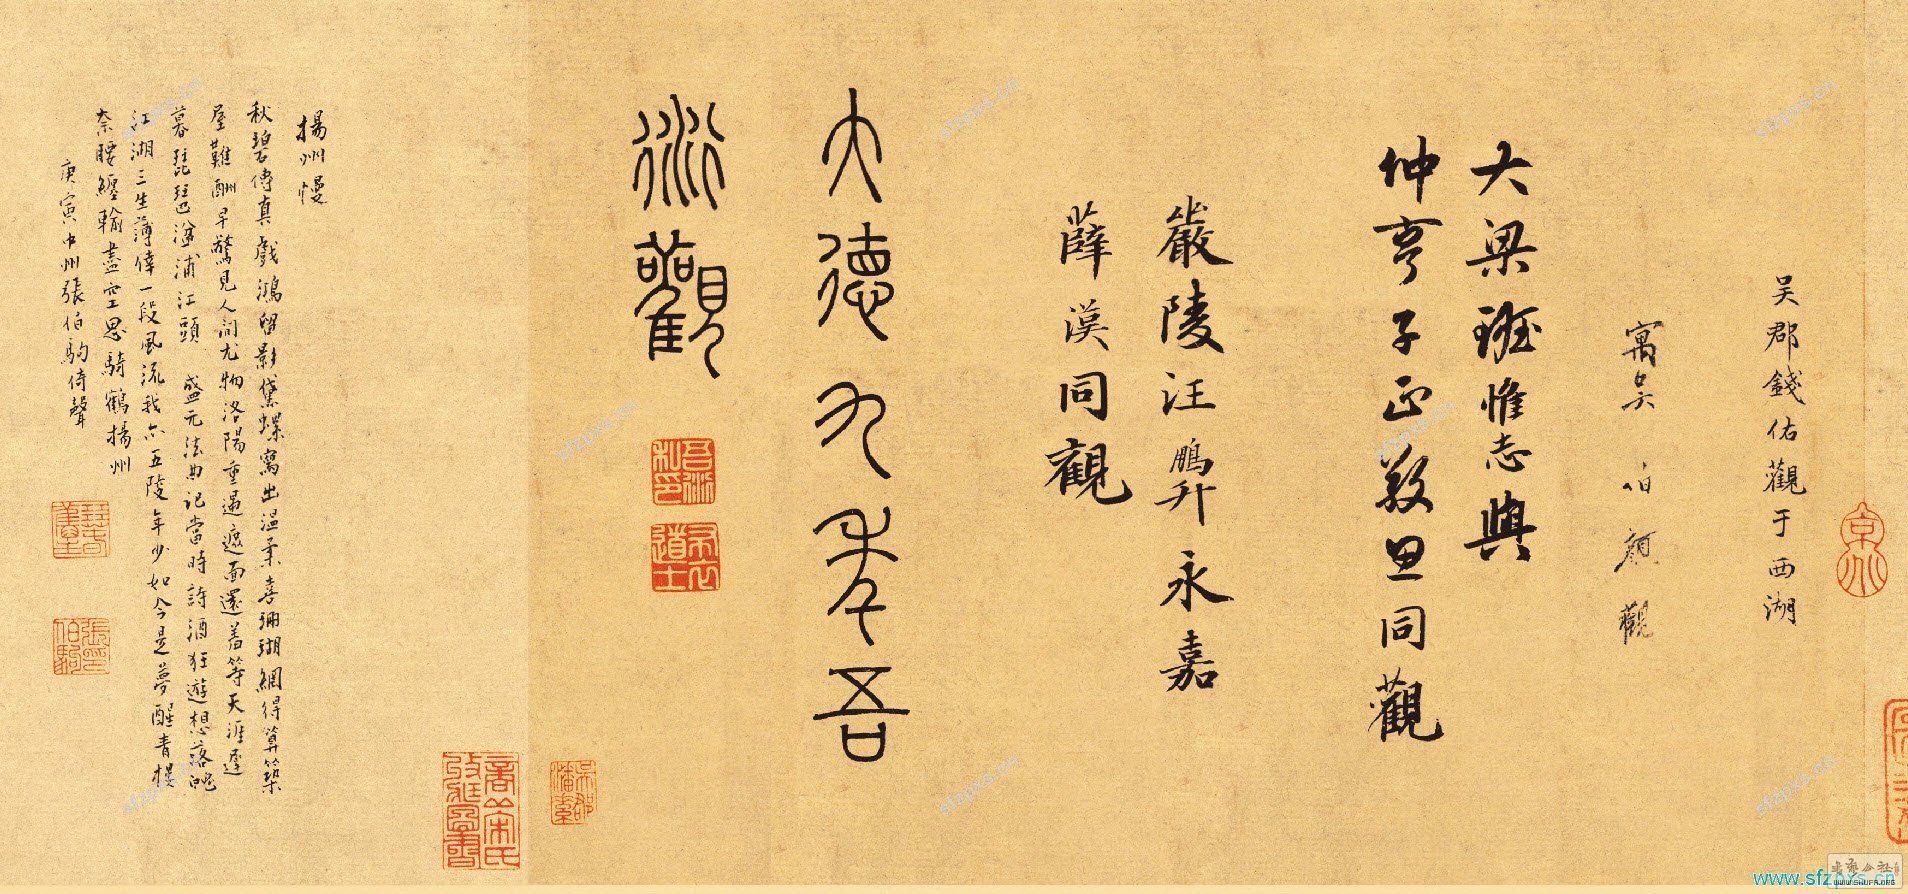 吳郡錢佑觀于西湖
寓吳 伯顏 觀
大梁班惟志與
仲亨子正同觀
嚴陵汪鵬升永嘉
薛漢同觀
大德九年吾
衍觀
吾衍私印
布衣道士
揚州慢
秋碧傳真戲鴻留影黛螺寫出溫柔喜珊瑚網得算築
屋難酬早驚見人間尤物洛陽重遇遮面還羞等天涯遲
暮琵琶湓浦江頭 盛元法曲記當時詩酒狂遊想落魄
江湖三生薄倖一段風流我亦五陵年少如今是夢醒青樓
奈腰纏輸盡空思騎鶴揚州
庚寅中州張伯駒倚聲
張伯駒印
sfzpxs.cn
www.sfzpxs.cn
WWW.SHUFA.ORG